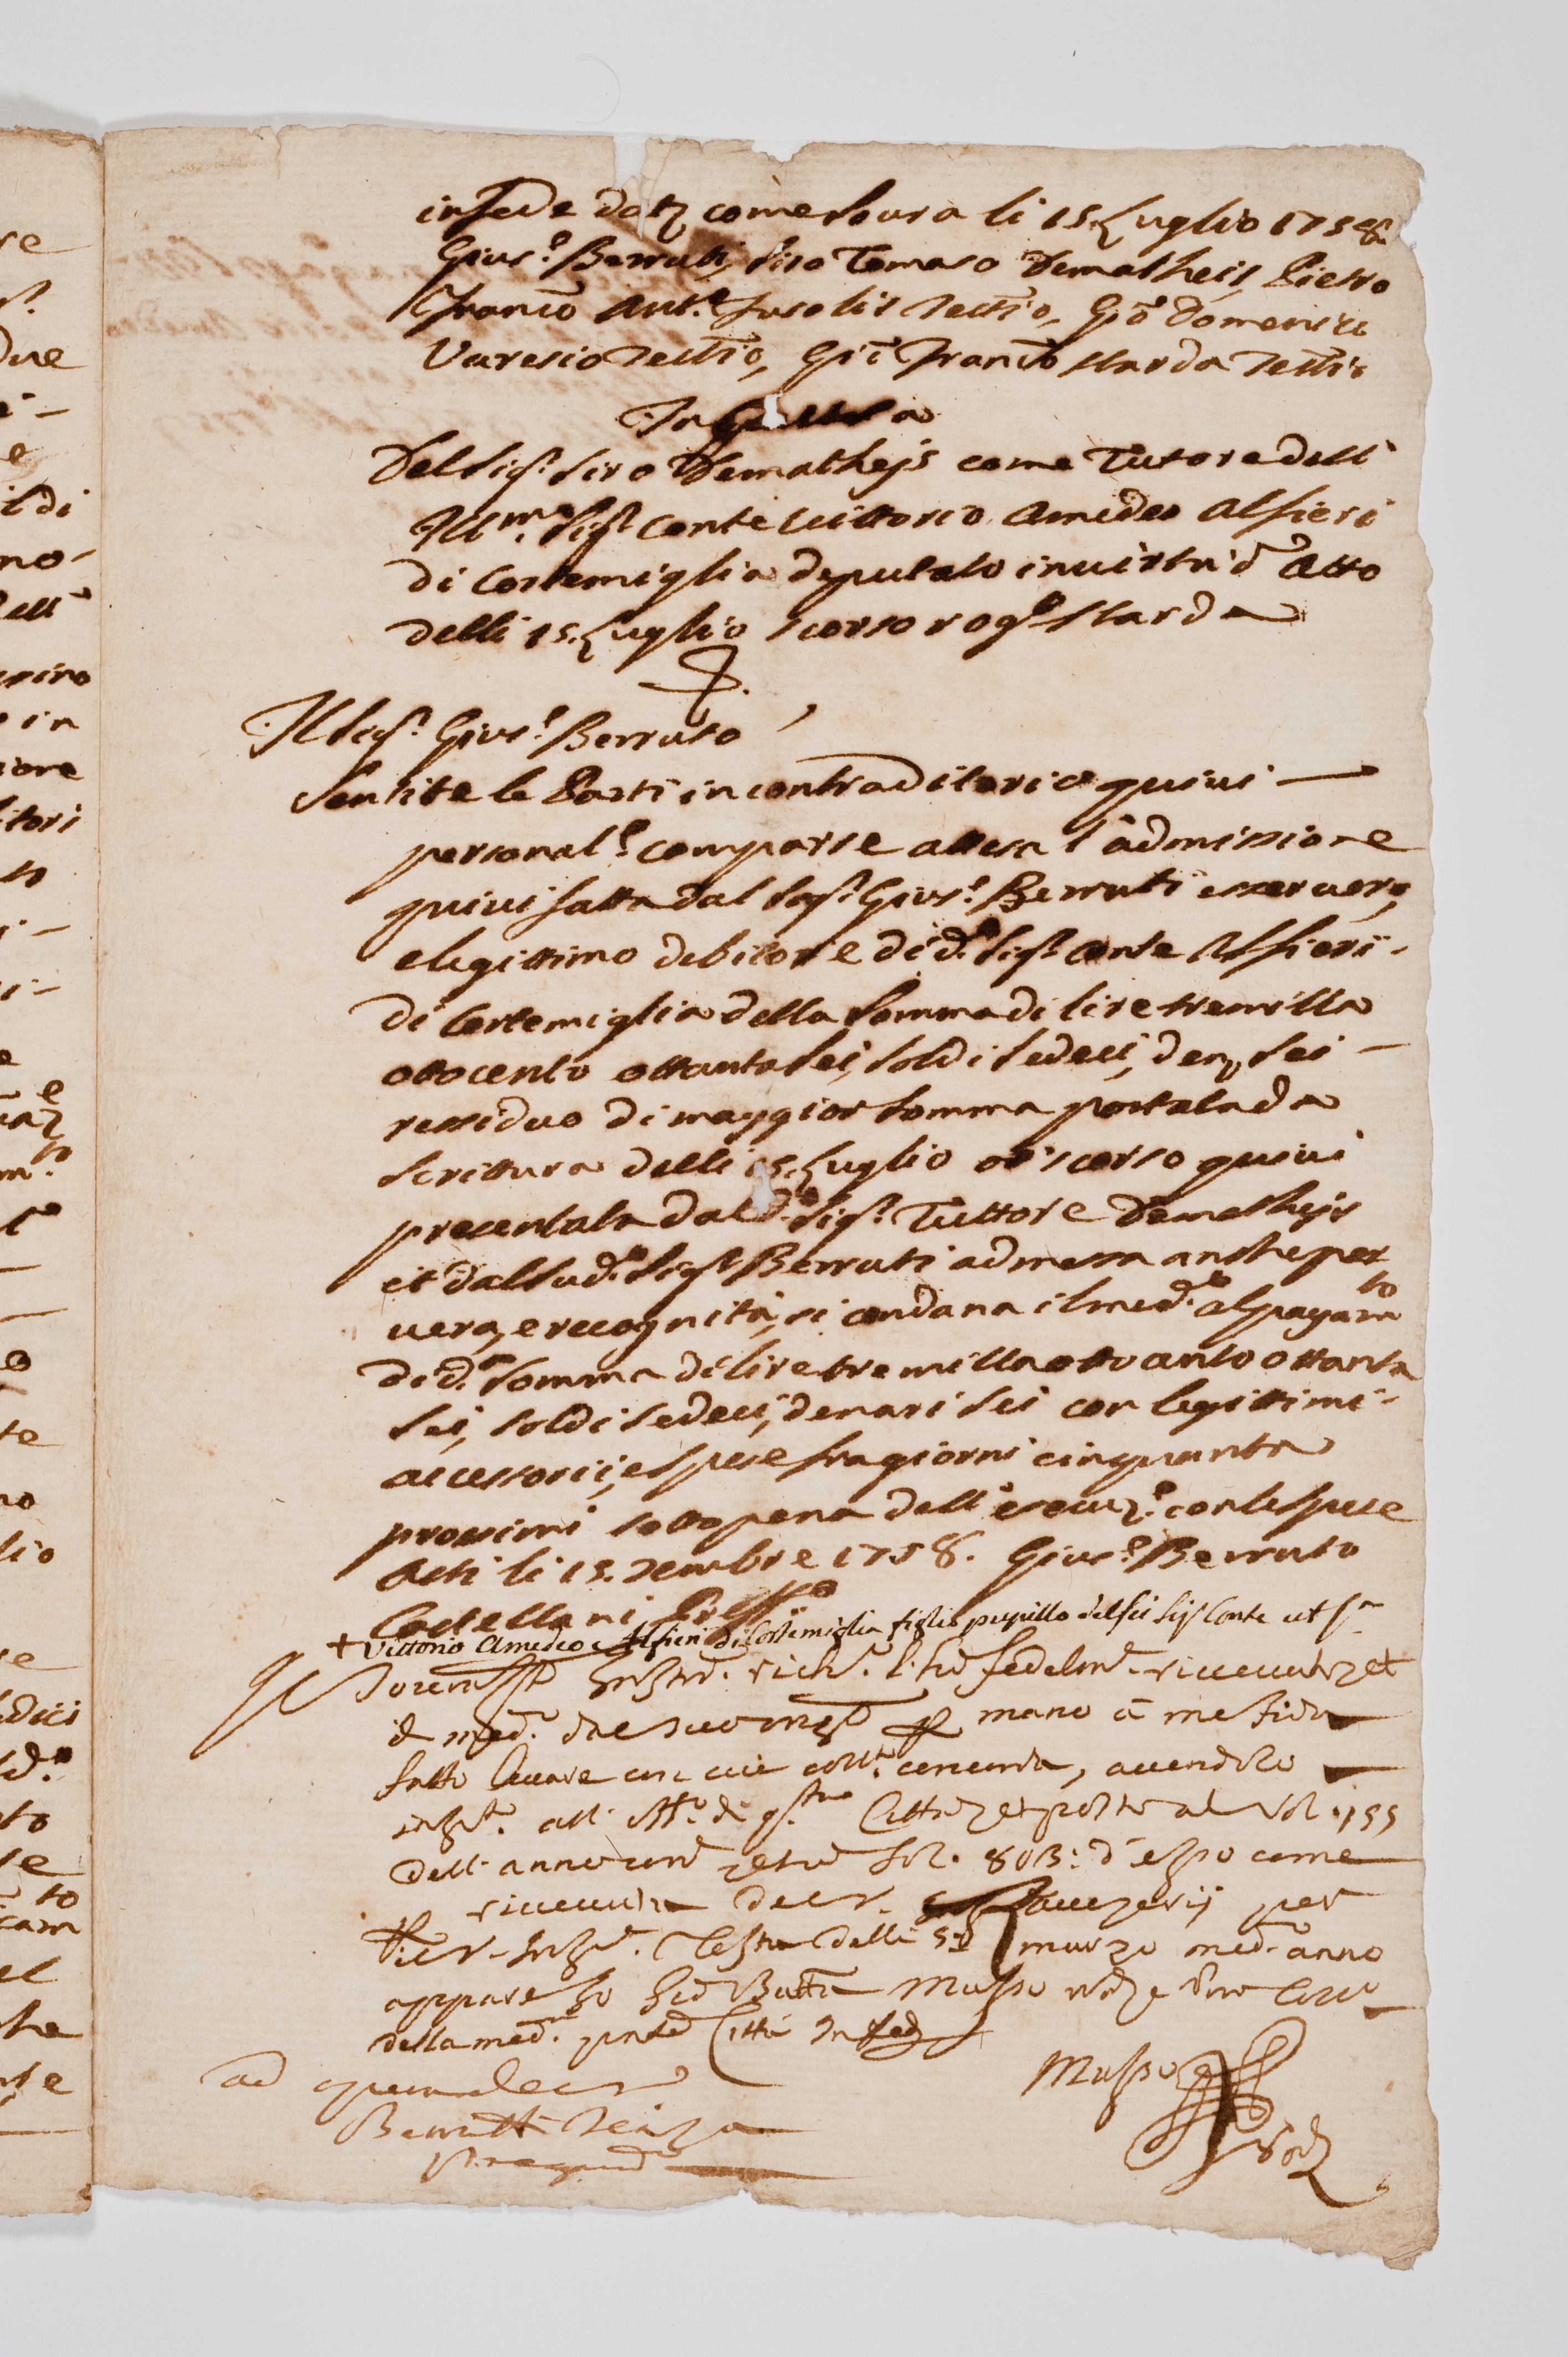 in fede dat: come soura li 15. Luglio 1758
Gius:e Berruti, Siro Tomaso Dematheis, Pietro
Franco Ant:o Fasolis testio, Gio Domenico
Varesio testio, Gio Franco Narda testio
In
Del Sig:r Siro Dematheÿs come Tutore dell'
Ill:mo Sig:r Conte Vittorio Amedeo Alfieri
di Cortemiglia deputato in virtù d'atto
delli 15. Luglio scorso rog:to Narda
Il Sig:r Gius:e Berruto
Sentite le Parti in contraditorio quivi —
personal:e comparse attesa l'admissione
quivi fatta dal Sig:r Gius:e Berruti esser vero,
e legittimo debitore di d:o Sig:r Conte Alfieri
di Cortemiglia della somma di lire tremilla
ottocento ottanta sei, soldi sedeci, den: sei —
ressiduo di maggior somma portata da
scrittura delli 15. Luglio or scorso quivi
presentata dal d:o Sig:r Tuttore Dematheÿs
et dal sud:o Sig:r Berruti admessa anche per
vera, e recognita, si condana il med:o al pagam:to
di d:a somma di lire tre milla otto cento ottanta
sei, soldi sedeci, denari sei con legittimi
accessorii, e spese fra giorni cinquanta
prossimi sotto pena dell'esecuz:e con le spese
Asti li 15. Xembre 1758. Gius:e Berruto
+ Vittorio Amedeo Alfieri di Cortemiglia figlio pupillo del fu Sig:r Conte ut s:a
fedelm:e riceceuto et
il med:o dal suo mano à me fida
fatto levare con cui coll:a concorda, avendolo
insin:to all' Uff:o di q:sta Città et posto al Vol. 155
dell' anno foz. 803: d'esso come
per
delli marzo med:o anno
appare Gio Batta Musso
della med:a Città In fede
Musso
ad
Berrutti